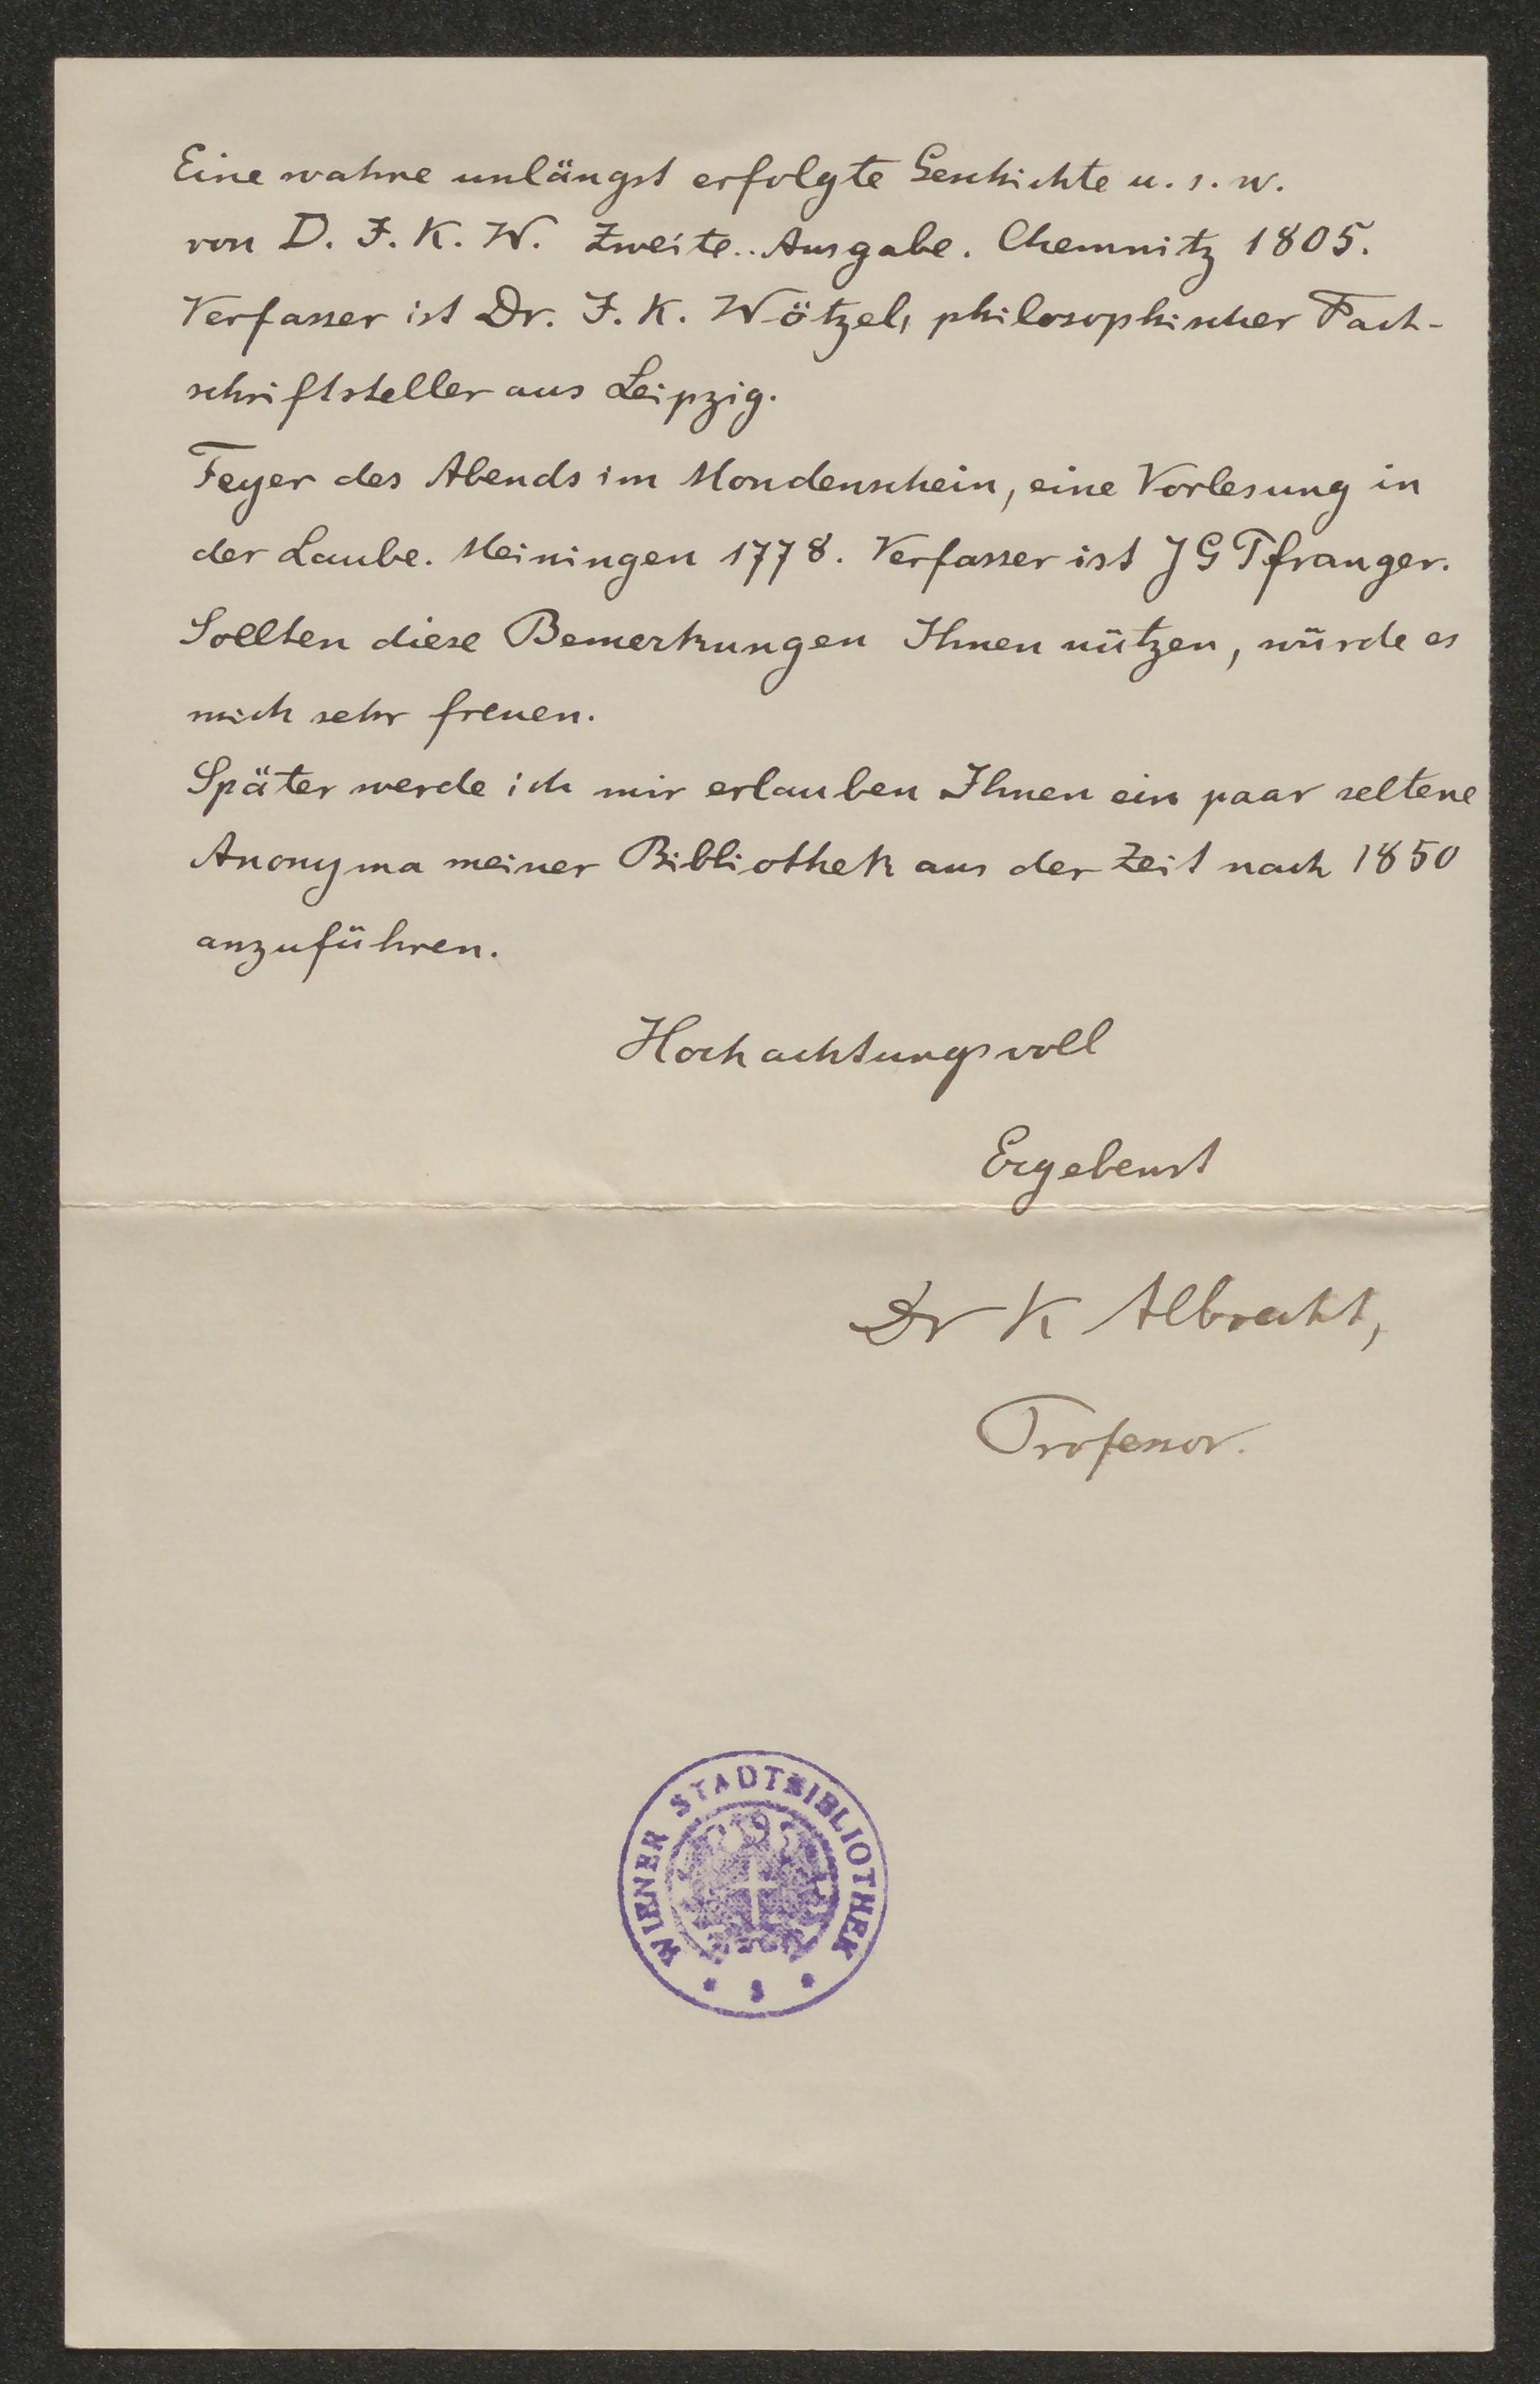 Eine wahre unlängst erfolgte Geschichte u. s. w.
von D. J. K. W. Zweite.. Ausgabe. Chemnitz 1805.
Verfasser ist Dr. J. K. Wötzel, philosophischer Fach-
schriftsteller aus Leipzig.
Feyer des Abends im Mondenschein, eine Vorlesung in
der Laube. Meiningen 1778. Verfasser ist J G Pfranger.
Sollten diese Bemerkungen Ihnen nützen, würde es
mich sehr freuen.
Später werde ich mir erlauben Ihnen ein paar seltene
Anonyma meiner Bibliothek aus der Zeit nach 1850
anzuführen.
Hochachtungsvoll
Ergebenst
Dr K Albrecht,
Professor.
WIENER STADTBIBLIOTHEK